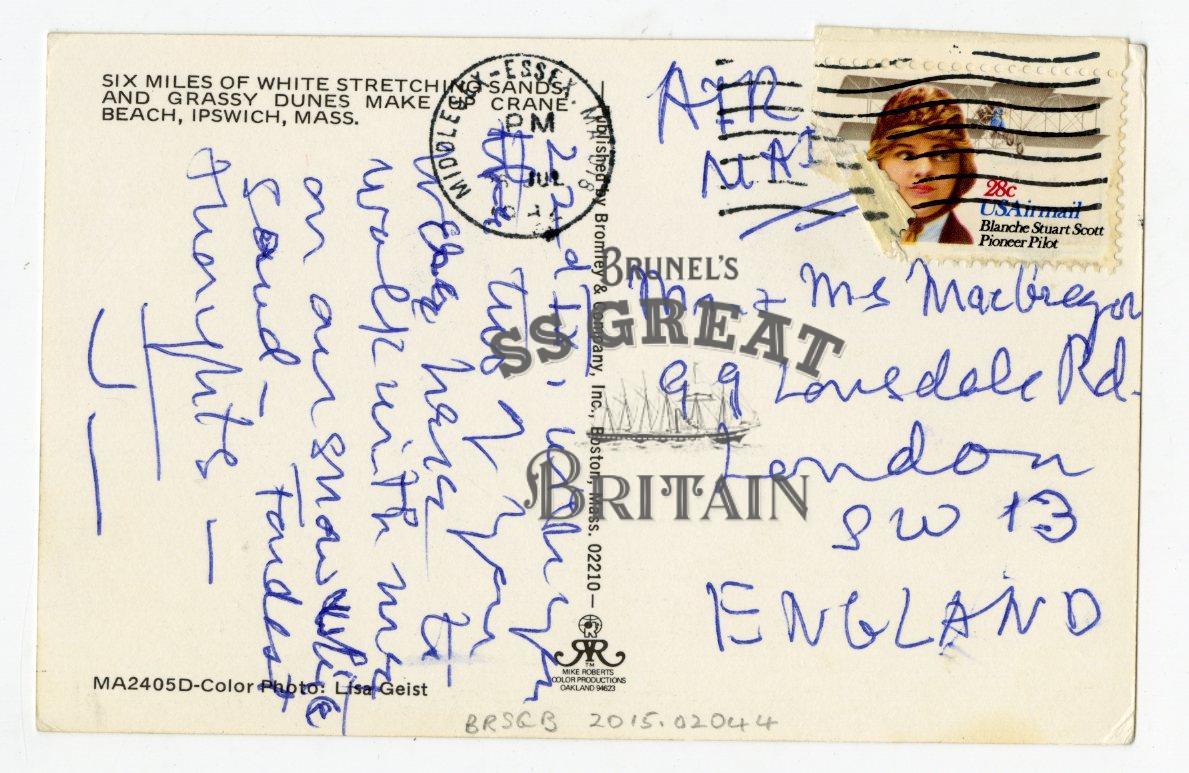 SIX MILES OF WHITE STRETCHING SANDS
AND GRASSY DUNES MAKE UP CRANE
BEACH, IPSWICH, MASS.
22nd
the two of you
were here to
walk with me
on our snow white
sand - Fondest
thoughts —
MA2405D-Color Photo: Lisa Geist
Published by Bromley & Company, Inc., Boston, Mass. 02210—
TM
MIKE ROBERTS
COLOR PRODUCTIONS
OAKLAND 94623
MIDDLESEX-ESSEX, MA 018
PM
JUL
28c
USAirmail
Blanche Stuart Scott
Pioneer Pilot
AIR
MAI
Mr + Ms MacGregor
99 Lonsdale Rd.
London
SW 13
ENGLAND
BRUNEL'S
SS GREAT
BRITAIN
BRSGB 2015.02044